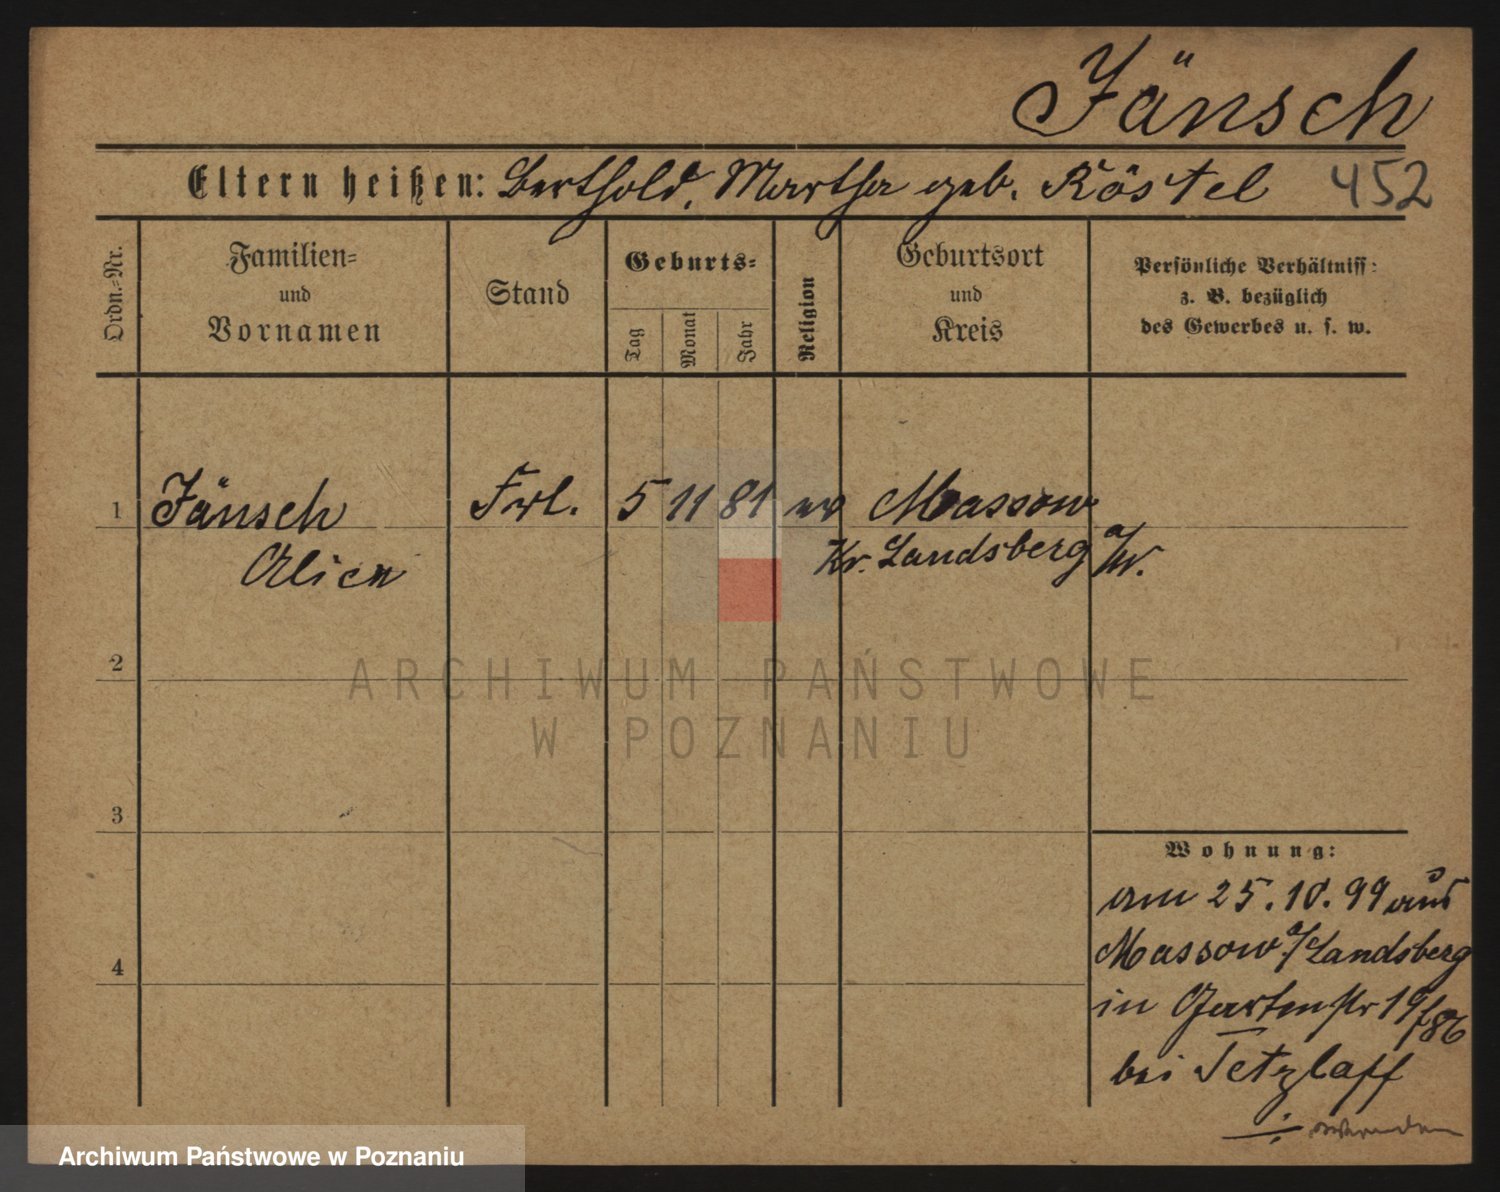 Jänsch
Eltern heißen: Berthold, Martha geb. Röstel 452
Ordn.-Nr.
Familien-
und
Vornamen
Stand
Geburts-
Tag
Monat
Jahr
Religion
Geburtsort
und
Kreis
Persönliche Verhältniss:
z. B. bezüglich
des Gewerbes u. s. w.
1 Jänsch Frl. 5 11 81 ev Massow
Kr. Landsberg a/W.
Alice
2
ARCHIWUM PAŃSTWOWE
W POZNANIU
3
Wohnung:
am 25.10.99 aus
Massow a/Landsberg
4
in Gartenstr 19/86
bei Tetzlaff
wenden
Archiwum Państwowe w Poznaniu